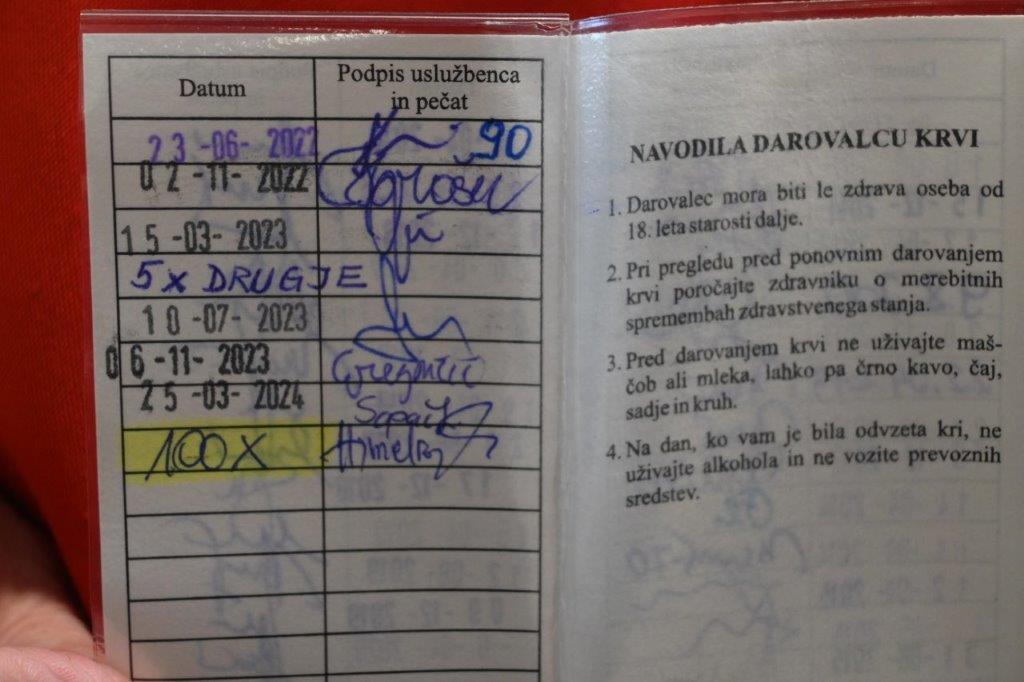 Datum
Podpis uslužbenca
in pečat
23 -06- 2022
90
02 -11- 2022
15 -03- 2023
5x DRUGJE
10 -07- 2023
06 -11- 2023
25 -03- 2024
100X
NAVODILA DAROVALCU KRVI
1. Darovalec mora biti le zdrava oseba od
18. leta starosti dalje.
2. Pri pregledu pred ponovnim darovanjem
krvi poročajte zdravniku o merebitnih
spremembah zdravstvenega stanja.
3. Pred darovanjem krvi ne uživajte maš-
čob ali mleka, lahko pa črno kavo, čaj,
sadje in kruh.
4. Na dan, ko vam je bila odvzeta kri, ne
uživajte alkohola in ne vozite prevoznih
sredstev.